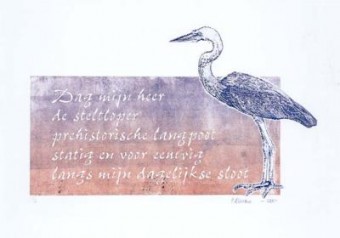 Dag mijn heer
de steltloper
prehistorische langpoot
statig en voor eeuwig
langs mijn dagelijkse sloot